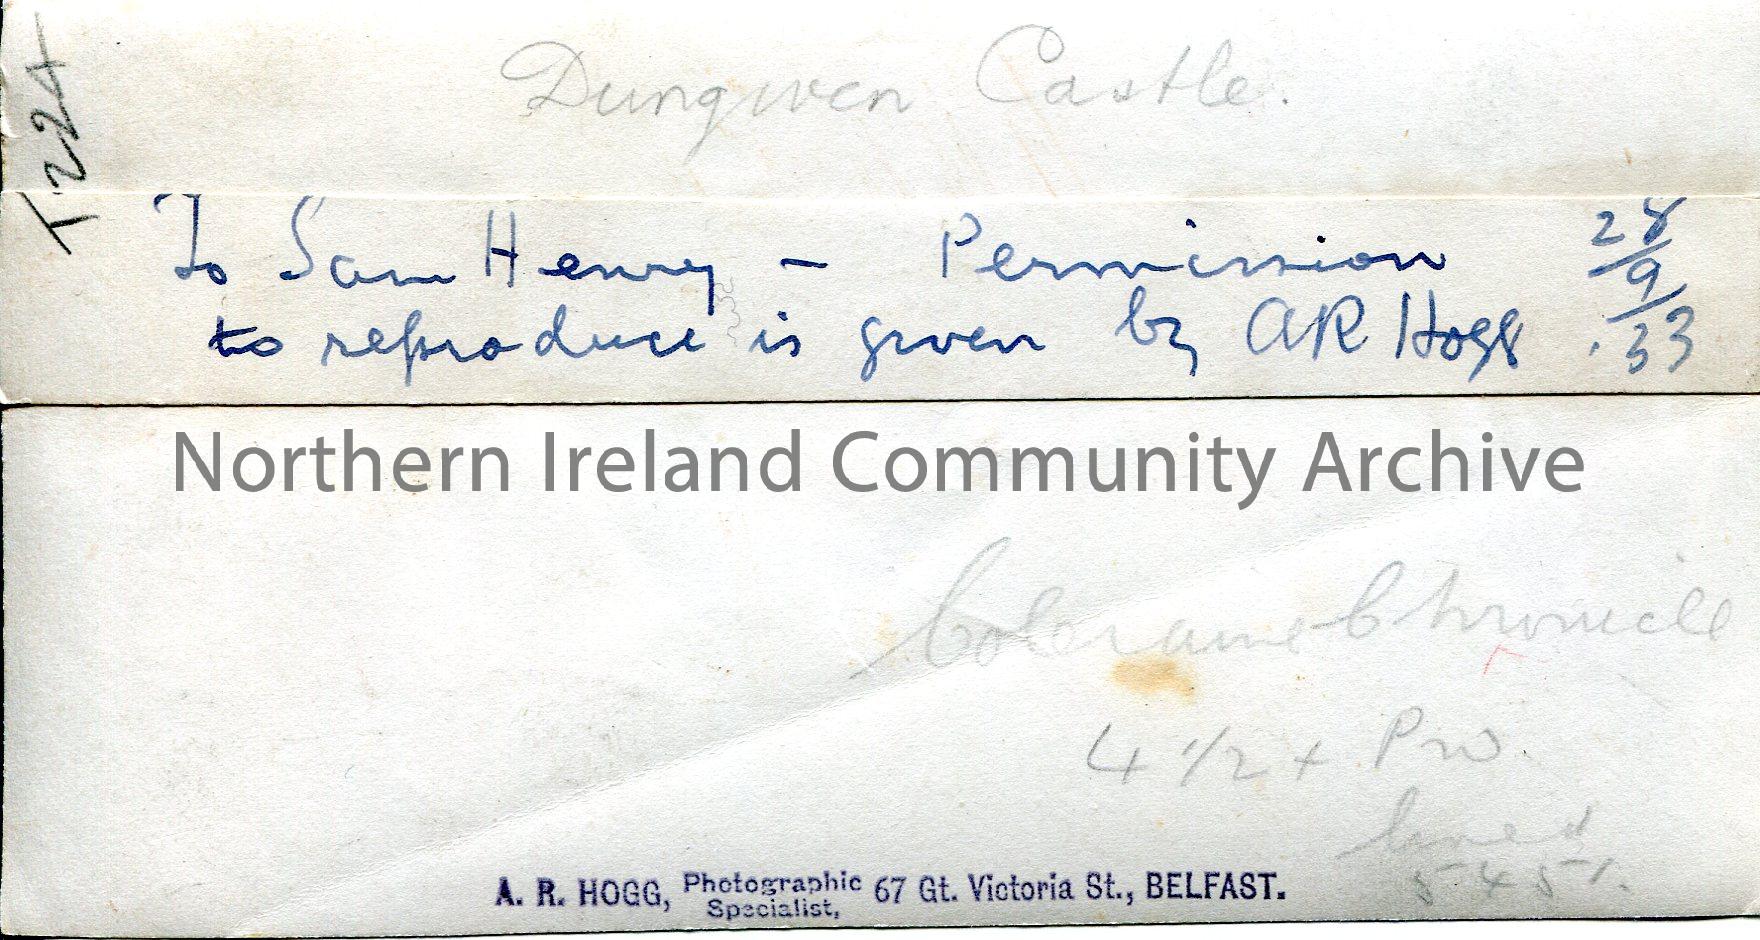 Dungiven Castle.
T224
To Sam Henry – Permission 28/9/33
to reproduce is given by AR Hogg
Northern Ireland Community Archive
Coleraine Chronicle
4 1/2 x
A. R. HOGG, Photographic Specialist, 67 Gt. Victoria St., BELFAST.